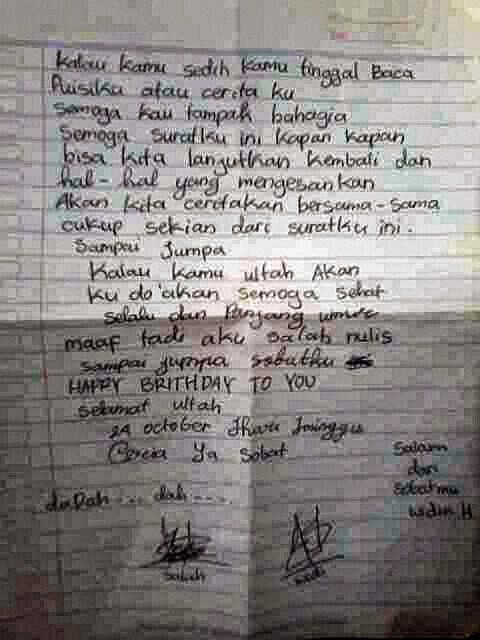 Kalau kamu sedih kamu tinggal Baca
Puisiku atau cerita ku
Semoga kau tampak bahagia
Semoga suratku ini kapan kapan
bisa kita lanjutkan kembali dan
hal-hal yang mengesankan
Akan kita ceritakan bersama-sama
cukup sekian dari suratku ini.
Sampai Jumpa
Kalau kamu ultah Akan
ku do'akan semoga sehat
selalu dan Panjang umur
maaf tadi aku salah nulis
sampai jumpa sobatku
HAPPY BRITHDAY TO YOU
selamat ultah
24 october Hari minggu
Ya Sobat
Salam
dari
sobatmu
H
daDah ... dah ....
salah